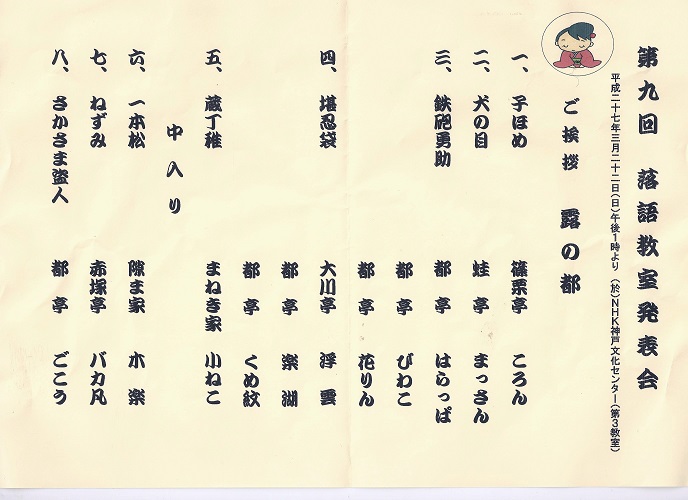 第九回 落語教室発表会
平成二十七年三月二十二日(日)午後1時より (於)NHK神戸文化センター(第3教室)
ご挨拶 露の都
一、子ほめ 篠栗亭 ころん
二、犬の目 蛙亭 まっさん
三、鉄砲勇助 都亭 はらっぱ
都亭 びわこ
都亭 花りん
四、堪忍袋 大川亭 浮雲
都亭 楽湖
都亭 くめ紋
五、蔵丁稚 まねき家 小ねこ
中入り
六、一本松 隙ま家 木楽
七、ねずみ 赤塚亭 バカ凡
八、さかさま盗人 都亭 ごこう